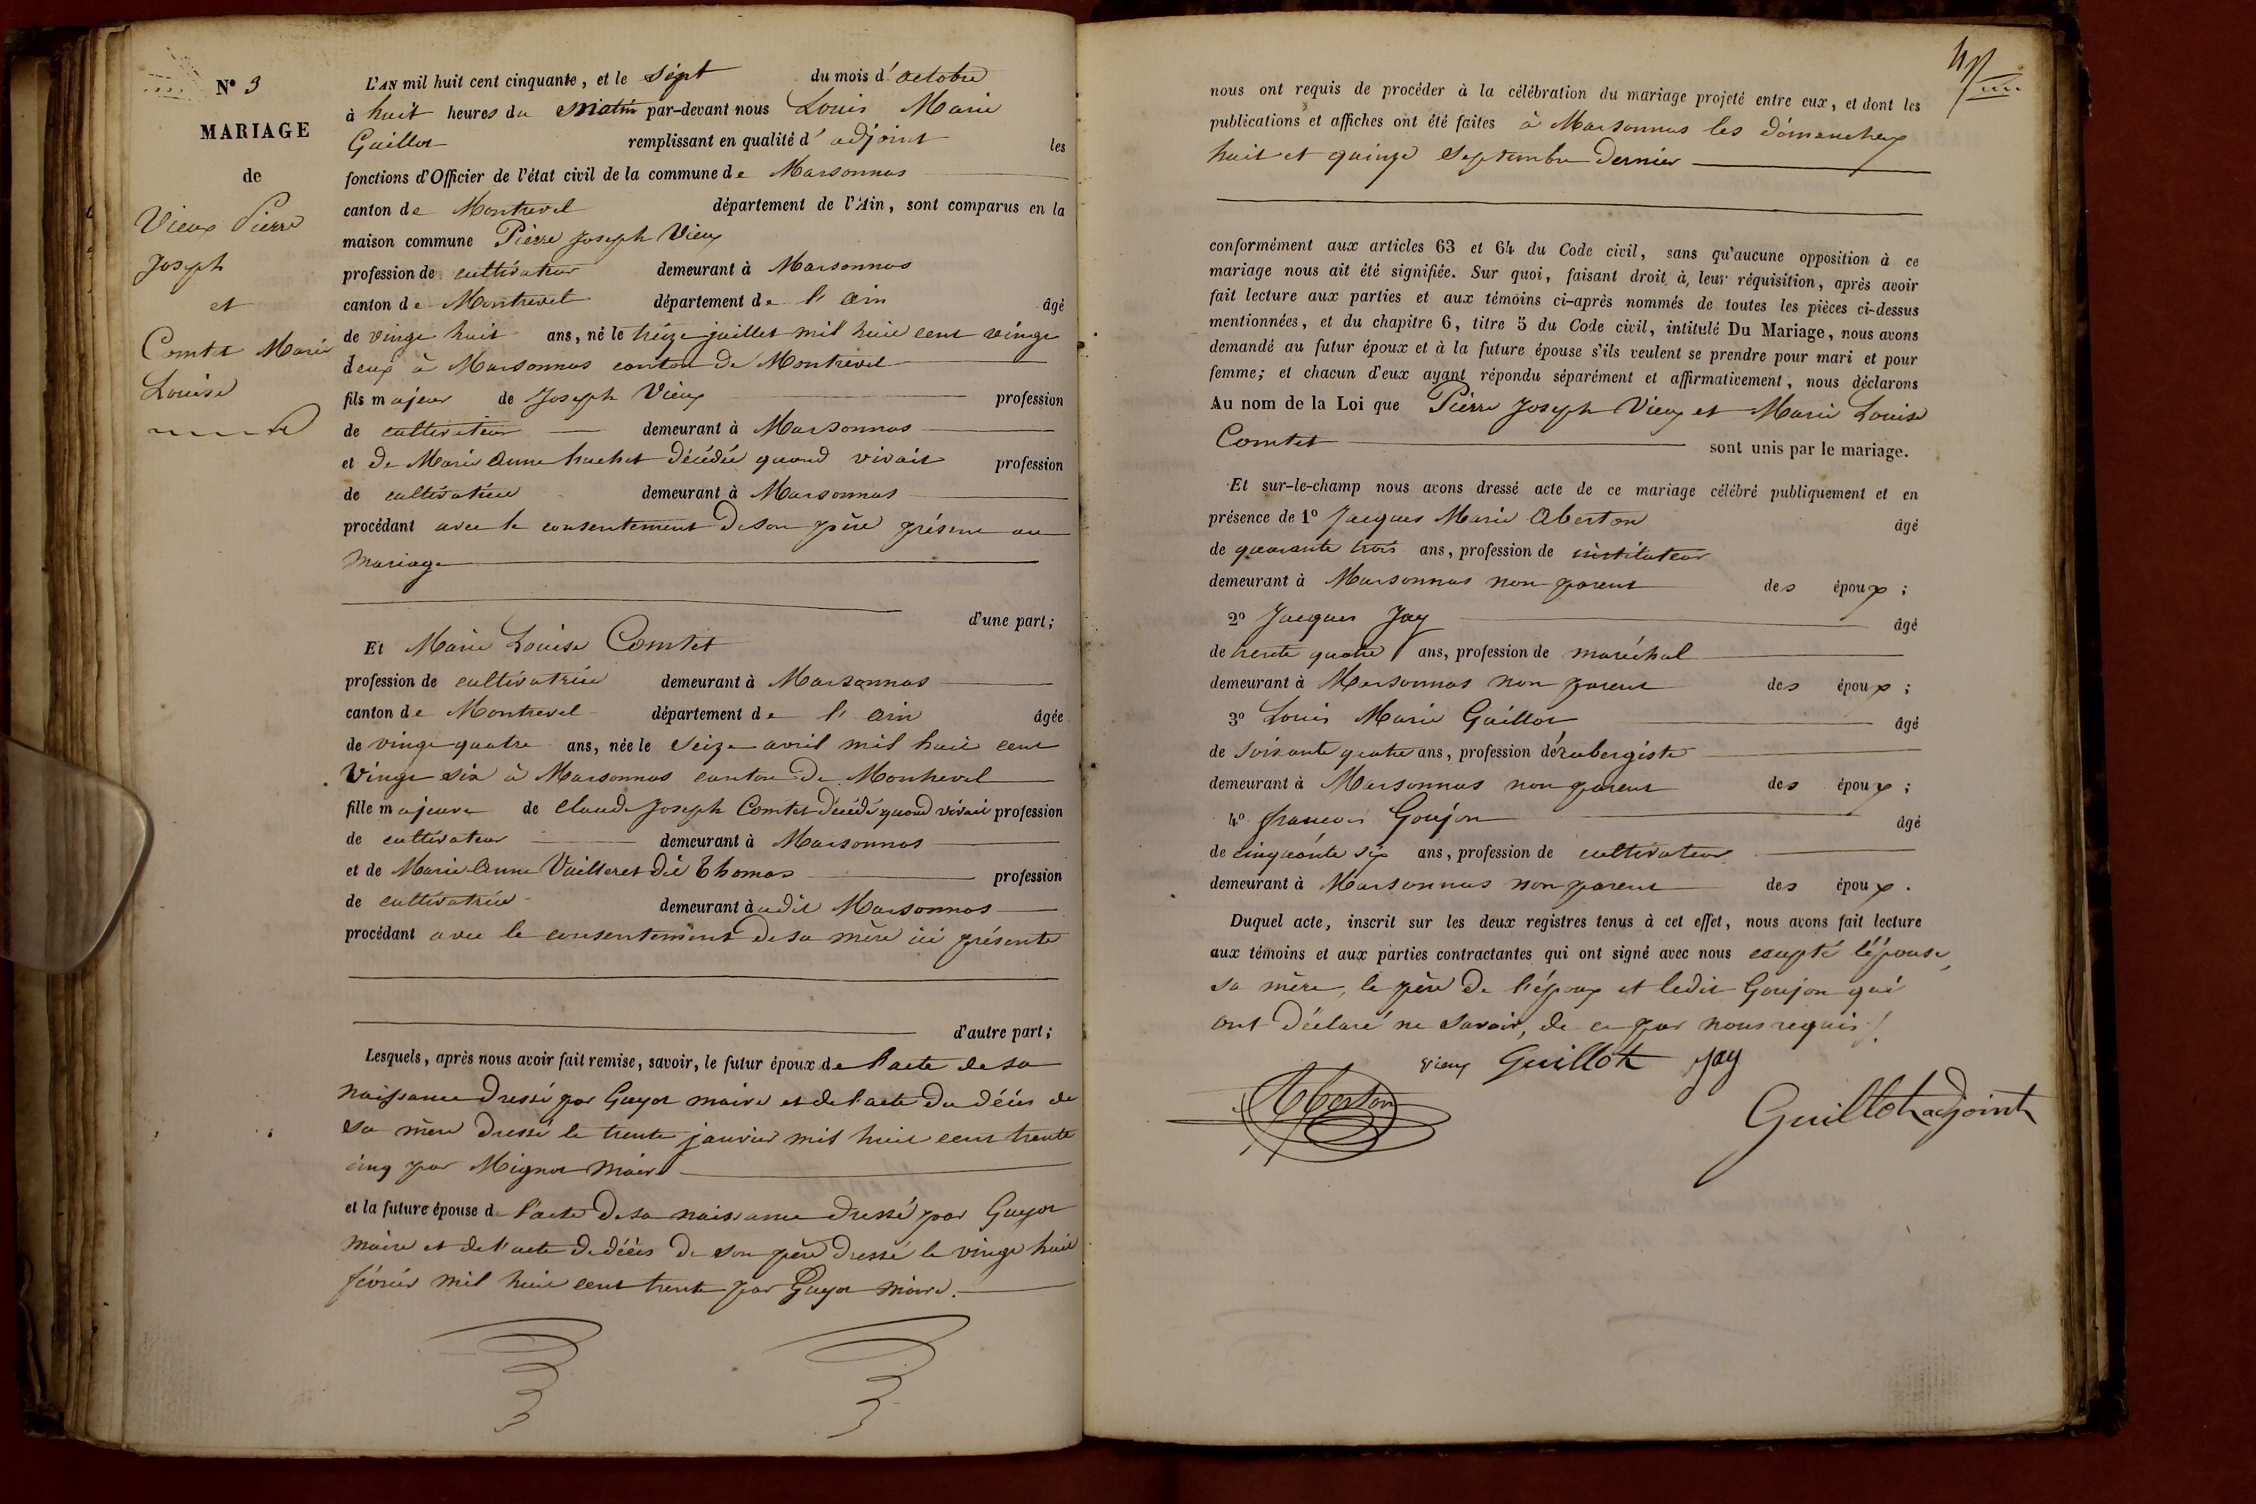 N° 3
MARIAGE
de
Vieux Pierre
Joseph
et
Comtet Marie
Louise
L'AN mil huit cent cinquante, et le sept du mois d'octobre
à huit heures du matin par-devant nous Louis Marie
Guillot remplissant en qualité d'adjoint les
fonctions d'Officier de l'état civil de la commune de Marsonnas
canton de Montrevel département de l'Ain, sont comparus en la
maison commune Pierre Joseph Vieux
profession de cultivateur demeurant à Marsonnas
canton de Montrevel département de l'ain âgé
de vingt huit ans, né le treize juillet mil huit cent vingt
deux à Marsonnas canton de Montrevel
fils majeur de Joseph Vieux profession
de cultivateur demeurant à Marsonnas
et de Marie Anne huchet décédée quand vivait profession
de cultivatrice demeurant à Marsonnas
procédant avec le consentement de son père présent au
mariage
d'une part;
Et Marie Louise Comtet
profession de cultivatrice demeurant à Marsonnas
canton de Montrevel département de l'ain âgée
de vingt quatre ans, née le seize avril mil huit cent
vingt six à Marsonnas canton de Montrevel
fille majeure de Claude Joseph Comtet décédé quand vivait profession
de cultivateur demeurant à Marsonnas
et de Marie Anne Vuilleret dit Thomas profession
de cultivatrice demeurant à udit Marsonnas
procédant avec le consentement de sa mère ici présente
d'autre part;
Lesquels, après nous avoir fait remise, savoir, le futur époux de l'acte de sa
naissance dressé par Guyot maire et de l'acte du décès de
sa mère dressé le trente janvier mil huit cent trente
cinq par Mignot Maire
et la future épouse de l'acte de sa naissance dressé par Guyot
maire et de l'acte de décès de son père dressé le vingt huit
février mil huit cent trente par Guyot maire.
nous ont requis de procéder à la célébration du mariage projeté entre eux, et dont les
publications et affiches ont été faites à Marsonnas les dimanches
huit et quinze septembre dernier
conformément aux articles 63 et 64 du Code civil, sans qu'aucune opposition à ce
mariage nous ait été signifiée. Sur quoi, faisant droit à leur réquisition, après avoir
fait lecture aux parties et aux témoins ci-après nommés de toutes les pièces ci-dessus
mentionnées, et du chapitre 6, titre 5 du Code civil, intitulé Du Mariage, nous avons
demandé au futur époux et à la future épouse s'ils veulent se prendre pour mari et pour
femme; et chacun d'eux ayant répondu séparément et affirmativement, nous déclarons
Au nom de la Loi que Pierre Joseph Vieux et Marie Louise
Comtet sont unis par le mariage.
Et sur-le-champ nous avons dressé acte de ce mariage célébré publiquement et en
présence de 1° Jacques Marie Aberton âgé
de quarante trois ans, profession de instituteur
demeurant à Marsonnas non parent des époux;
2° Jacques Jay âgé
de trente quatre ans, profession de maréchal
demeurant à Marsonnas non parent des époux;
3° Louis Marie Guillot âgé
de soixante quatre ans, profession d'aubergiste
demeurant à Marsonnas non parent des époux;
4° francois Goujon âgé
de cinquante six ans, profession de cultivateur
demeurant à Marsonnas non parent des époux.
Duquel acte, inscrit sur les deux registres tenus à cet effet, nous avons fait lecture
aux témoins et aux parties contractantes qui ont signé avec nous excepté l'épouse,
sa mère, le père de l'époux et ledit Goujon qui
ont déclaré ne savoir, de ce par nous requis!
Vieux Guillot Jay
Aberton
Guillot adjoint